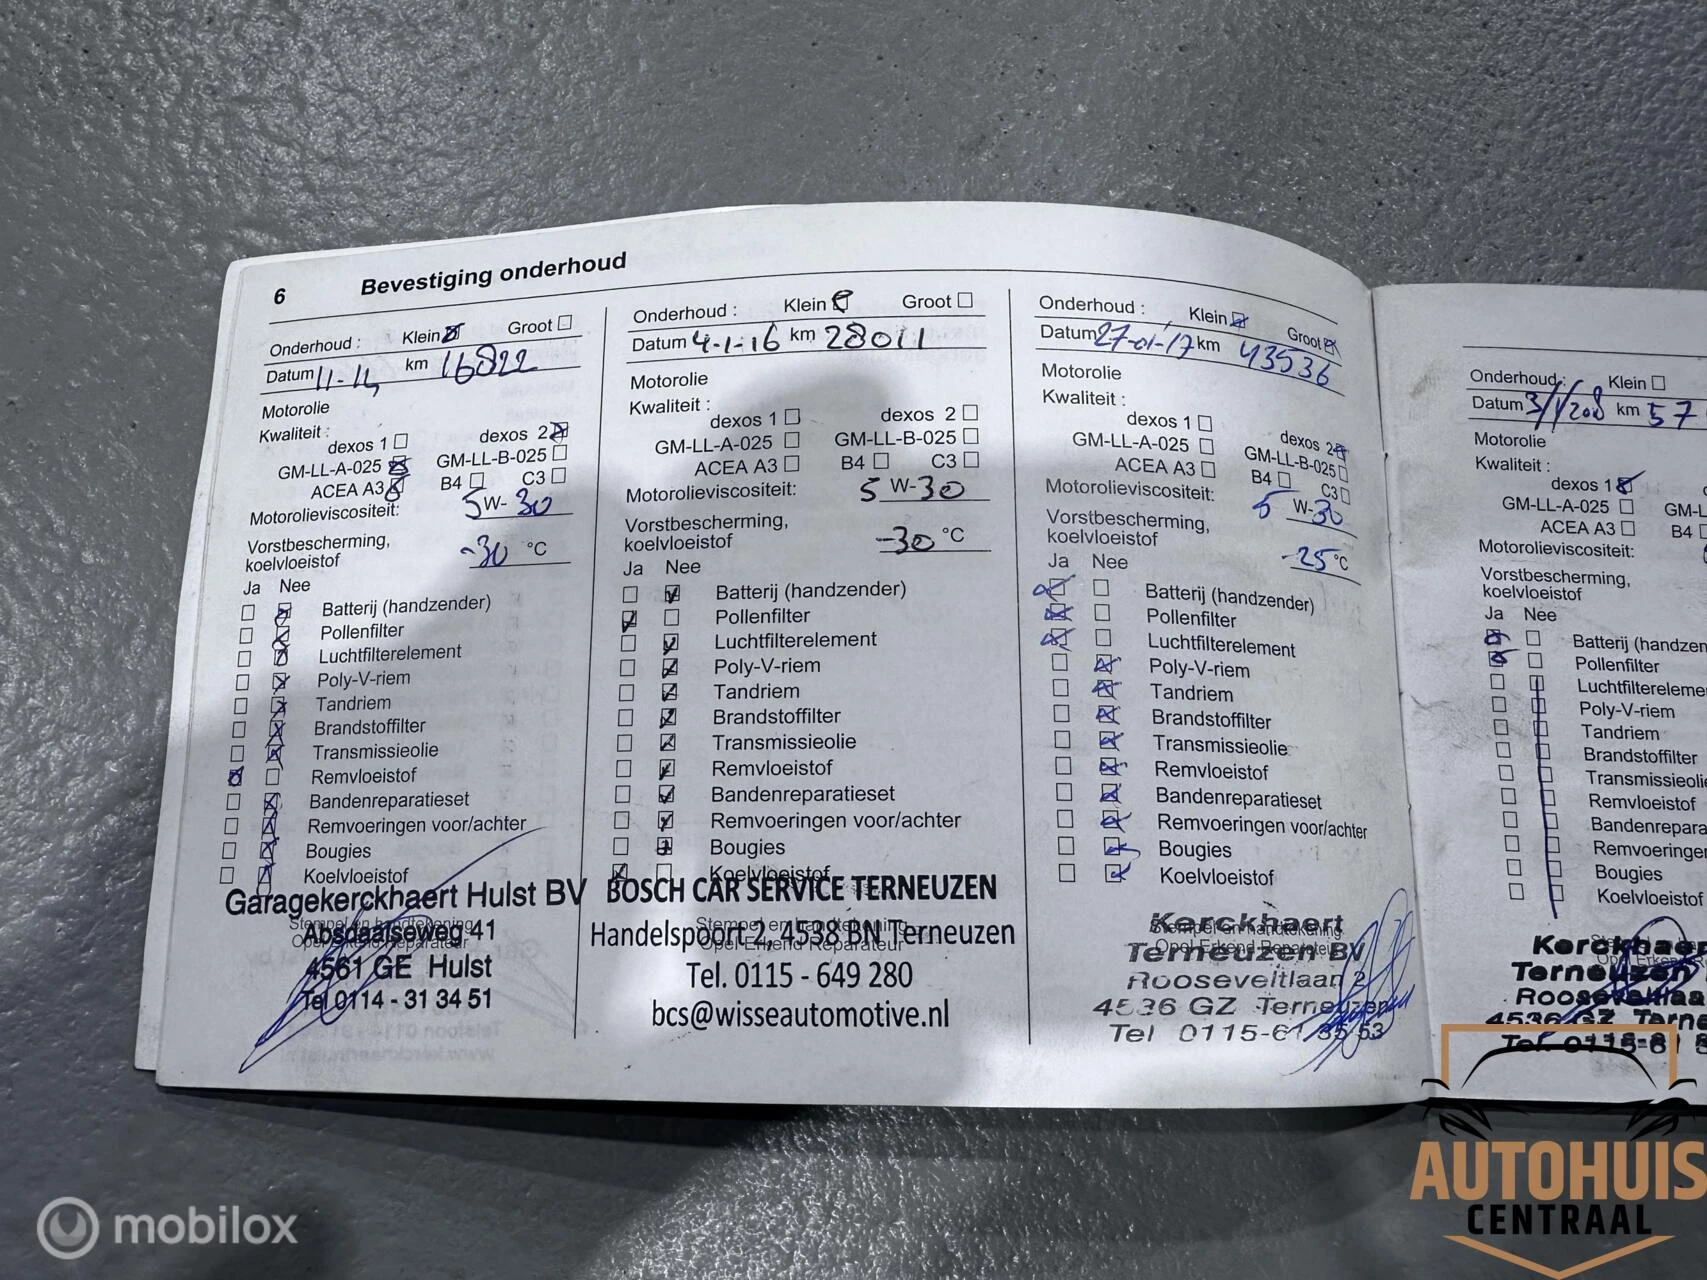 6 Bevestiging onderhoud
Onderhoud : Klein Groot
Datum 11-14 km 16822
Motorolie
Kwaliteit :
dexos 1 dexos 2
GM-LL-A-025 GM-LL-B-025
ACEA A3 B4 C3
Motorolieviscositeit: 5 W- 30
Vorstbescherming,
koelvloeistof -30 °C
Ja Nee
Batterij (handzender)
Pollenfilter
Luchtfilterelement
Poly-V-riem
Tandriem
Brandstoffilter
Transmissieolie
Remvloeistof
Bandenreparatieset
Remvoeringen voor/achter
Bougies
Koelvloeistof
Garagekerckhaert Hulst BV
Stempel en handtekening
Absdaalseweg 41
Opel Erkend Reparateur
4561 GE Hulst
Tel 0114 - 31 34 51
Onderhoud : Klein Groot
Datum 4-1-16 km 28011
Motorolie
Kwaliteit :
dexos 1 dexos 2
GM-LL-A-025 GM-LL-B-025
ACEA A3 B4 C3
Motorolieviscositeit: 5 W-30
Vorstbescherming,
koelvloeistof -30 °C
Ja Nee
Batterij (handzender)
Pollenfilter
Luchtfilterelement
Poly-V-riem
Tandriem
Brandstoffilter
Transmissieolie
Remvloeistof
Bandenreparatieset
Remvoeringen voor/achter
Bougies
Koelvloeistof
BOSCH CAR SERVICE TERNEUZEN
Stempel en handtekening
Handelspoort 2, 4538 BN Terneuzen
Opel Erkend Reparateur
Tel. 0115 - 649 280
bcs@wisseautomotive.nl
Onderhoud : Klein Groot
Datum 27-01-17 km 43536
Motorolie
Kwaliteit :
dexos 1 dexos 2
GM-LL-A-025 GM-LL-B-025
ACEA A3 B4 C3
Motorolieviscositeit: 5 W-30
Vorstbescherming,
koelvloeistof -25 °C
Ja Nee
Batterij (handzender)
Pollenfilter
Luchtfilterelement
Poly-V-riem
Tandriem
Brandstoffilter
Transmissieolie
Remvloeistof
Bandenreparatieset
Remvoeringen voor/achter
Bougies
Koelvloeistof
Kerckhaert
Stempel en handtekening
Terneuzen BV
Opel Erkend Reparateur
Rooseveltlaan 2
4536 GZ Terneuzen
Tel 0115-61 35 53
Onderhoud : Klein
Datum km 57
Motorolie
Kwaliteit :
dexos 1
GM-LL-A-025 GM-L
ACEA A3 B4
Motorolieviscositeit:
Vorstbescherming,
koelvloeistof
Ja Nee
Batterij (handzen
Pollenfilter
Luchtfiltereleme
Poly-V-riem
Tandriem
Brandstoffilter
Transmissieolie
Remvloeistof
Bandenrepara
Remvoeringen
Bougies
Koelvloeistof
Kerckhaer
Terneuzen
Rooseveltlaa
4536 GZ Terne
Tel. 0115-61
AUTOHUIS
CENTRAAL
mobilox